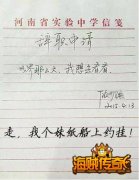 河南省实验中学信笺
辞职申请
世界那么大，我想去看看
2015.4.13
走，我个妹纸船上约挂！
海贼传奇